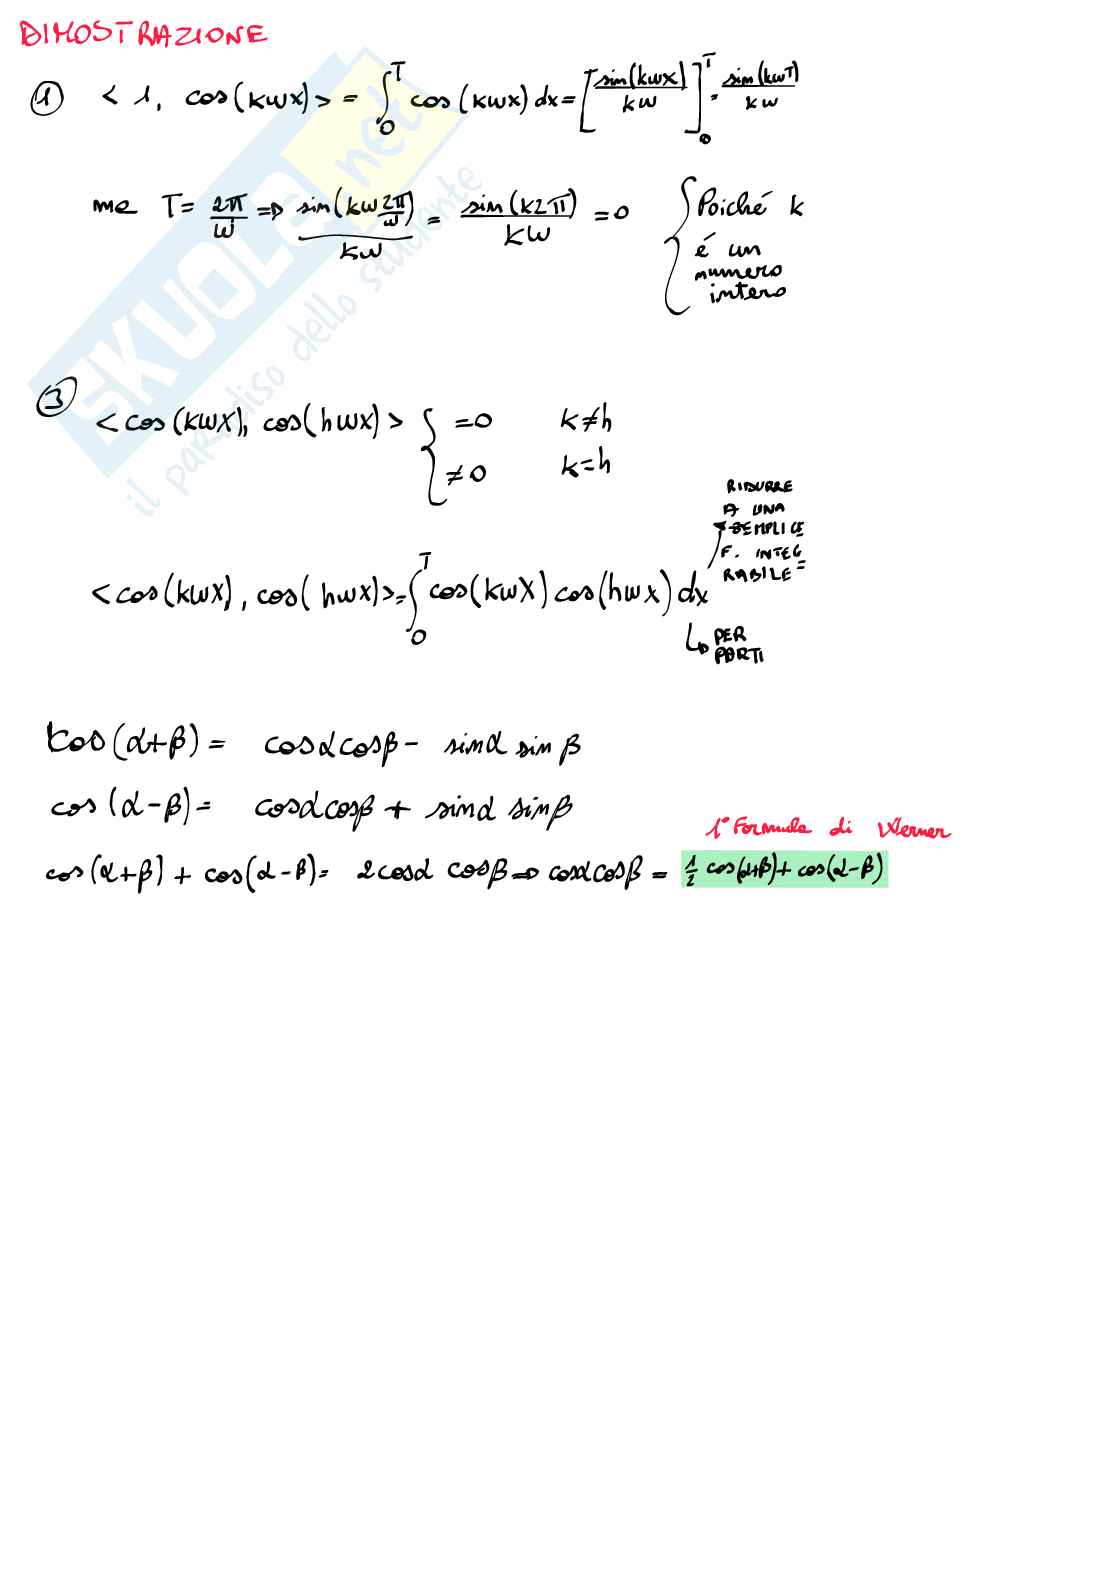 DIMOSTRAZIONE
① < 1, cos(kωx)> = ∫₀ᵀ cos(kωx) dx = [sin(kωx)/kω]₀ᵀ = sin(kωT)/kω
ma T = 2π/ω => sin(kω 2π/ω)/kω = sin(k2π)/kω = 0 { Poiché k
é un
numero
intero
③ <cos(kωx), cos(hωx)> { =0 k≠h
≠0 k=h
RIDURRE
A UNA
SEMPLICE
F. INTEG
RABILE
<cos(kωx), cos(hωx)> = ∫₀ᵀ cos(kωx) cos(hωx) dx
↳ PER
PARTI
cos(α+β) = cosαcosβ - sinα sinβ
cos(α-β) = cosαcosβ + sinα sinβ
1° Formula di Werner
cos(α+β) + cos(α-β) = 2cosα cosβ => cosαcosβ = 1/2 cos(α+β) + cos(α-β)
SKUOLA.net
il paradiso dello studente